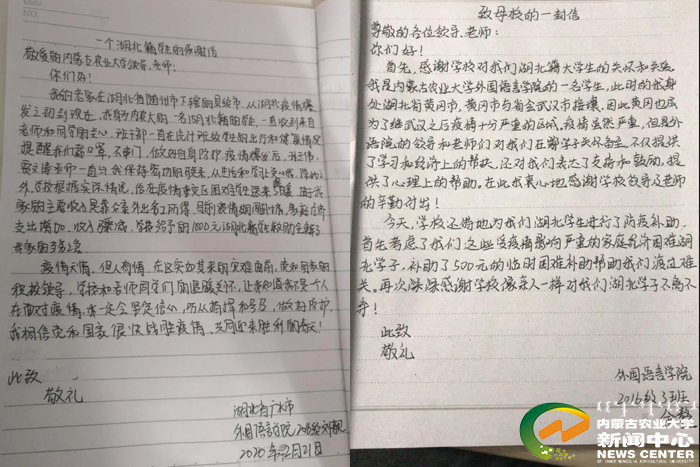 Date
NO
一个湖北籍学生的感谢信
敬爱的内蒙古农业大学领导、老师：
你们好！
我的老家在湖北省随州市下辖的县级市，从湖北疫情爆
发之初到现在，农大的一名湖北籍的学生，一直收到来自
老师和同学的关心，班干部一直在统计班级学生的出行和健康情况
提醒我们戴口罩，不串门，做好自身防护。疫情爆发后，
老师一直与我保持着密切的联系，从生活和学习上关心我，除此之
外，学校根据实际情况，给在疫情重灾区困难学生
家的主要收入是靠父亲外出务工所得，目前疫情期间
支出增加，收入，学校给予的1000元湖北籍学生救助金缓解了
我家的
疫情无情，但人有情，在这突如其来的灾难面前，党和国家的
积极领导，学校和老师同学们的温暖关怀，让我知道我不是一个人
在面对疫情，我一定会坚定信心，听从指挥和安排，做好防护，
我相信党和国家很快战胜疫情，共同迎来胜利的春天！
此致
敬礼
湖北省广水市
外国语学院
2020年2月21日
致母校的一封信
尊敬的各位领导、老师：
你们好！
首先，感谢学校对我们湖北籍大学生的关怀和关爱。
我是内蒙古农业大学外国语学院的一名学生，此时的我身
处湖北省黄冈市，黄冈市与省会武汉市接壤，因此黄冈也成
为了继武汉之后疫情十分严重的区域。疫情虽然严重，但是外
语学院的领导和老师们对我们在鄂学子关怀备至，不仅提供
了学习和经济上的帮扶，还对我们表达了支持和鼓励，提
供了心理上的帮助。在此我衷心地感谢学校领导及老师
的辛勤付出！
今天，学校还特地为我们湖北学生进行了防疫补助，
首先考虑了我们这些受疫情影响严重的家庭经济困难湖
北学子，补助了500元的临时困难补助帮助我们渡过难
关。再次深深感谢学校像亲人一样对我们湖北学子不离不
弃！
此致
敬礼
外国语言学院
2016级3班
内蒙古农业大学
新闻中心
NEWS CENTER